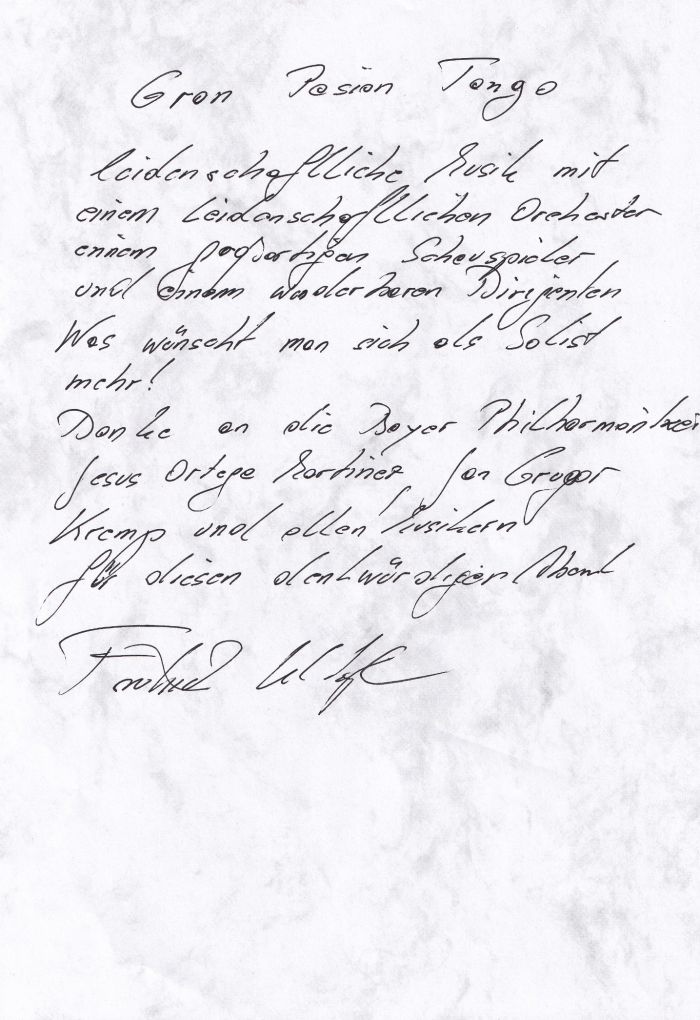 Gran Pasion Tango
leidenschaftliche Musik mit
einem leidenschaftlichen Orchester
einem großartigen Schauspieler
und einem wunderbaren Dirigenten
Was wünscht man sich als Solist
mehr!
Danke an die Bayer Philharmoniker
Jesus Ortega Martinez Jan Gregor
Kremp und allen Musikern
für diesen denkwürdigen Abend